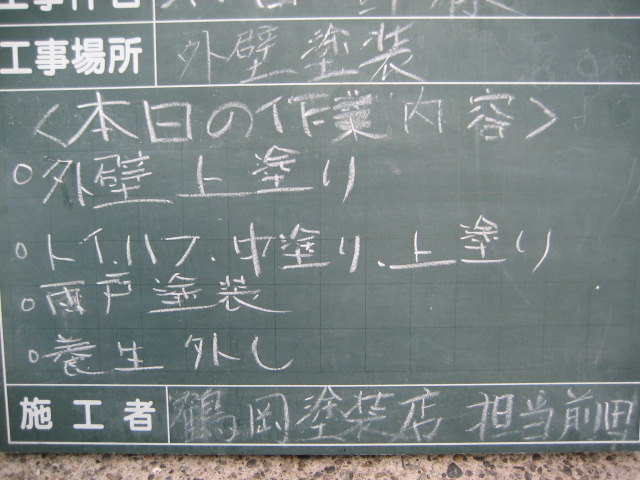 工事件名
工事場所 外壁塗装
<本日の作業内容>
○外壁上塗り
○トイ.ハフ.中塗り.上塗り
○雨戸塗装
○養生外し
施工者 鶴岡塗装店 担当前田